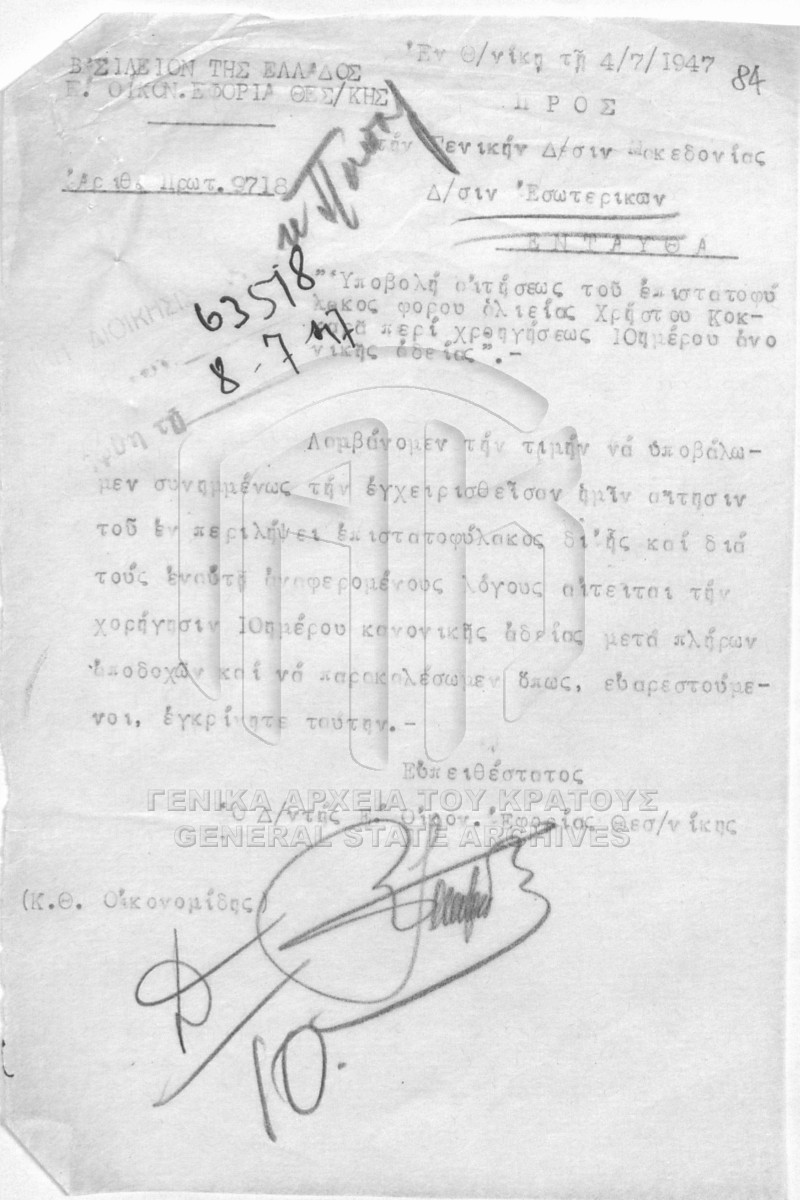 ΒΑΣΙΛΕΙΟΝ ΤΗΣ ΕΛΛΑΔΟΣ
Ε. ΟΙΚΟΝ.ΕΦΟΡΙΑ ΘΕΣ/ΚΗΣ
Ἀριθ. Πρωτ. 9718
Ἐν Θ/νίκῃ τῇ 4/7/1947
84
ΠΡΟΣ
τήν Γενικήν Δ/σιν Μακεδονίας
Δ/σιν Ἐσωτερικων
ΕΝΤΑΥΘΑ
63518
8-7-47
"Ὑποβολή αἰτήσεως τοῦ ἐπιστατοφύ
λακος φορου ἁλιείας Χρήστου Κοκ-
περί χρηγήσεως 10ημέρου ἀνο
νικῆς ἀδείας".-
ΔΙΟΙΚΗΣΙΣ
Λαμβάνομεν τήν τιμήν νά ὑποβάλω-
μεν συνημμένως τήν ἐγχειρισθεῖσαν ἡμῖν αἴτησιν
τοῦ ἐν περιλήψει ἐπιστατοφύλακος δι'ἧς καί διά
τούς ἐναὐτῇ ἀναφερομένους λόγους αἰτειται τήν
χορήγησιν 10ημέρου κανονικῆς ἀδείας μετά πλήρων
ἀποδοχῶν καί νά παρακαλέσωμεν ὅπως, εὐαρεστούμε-
νοι, ἐγκρίνητε ταύτην.-
Εὐπειθέστατος
Ὁ Δ/ντής Ε. Οἰκον. Ἐφορίας Θεσ/νίκης
ΓΕΝΙΚΑ ΑΡΧΕΙΑ ΤΟΥ ΚΡΑΤΟΥΣ
GENERAL STATE ARCHIVES
(Κ.Θ. Οἰκονομίδης)
10.